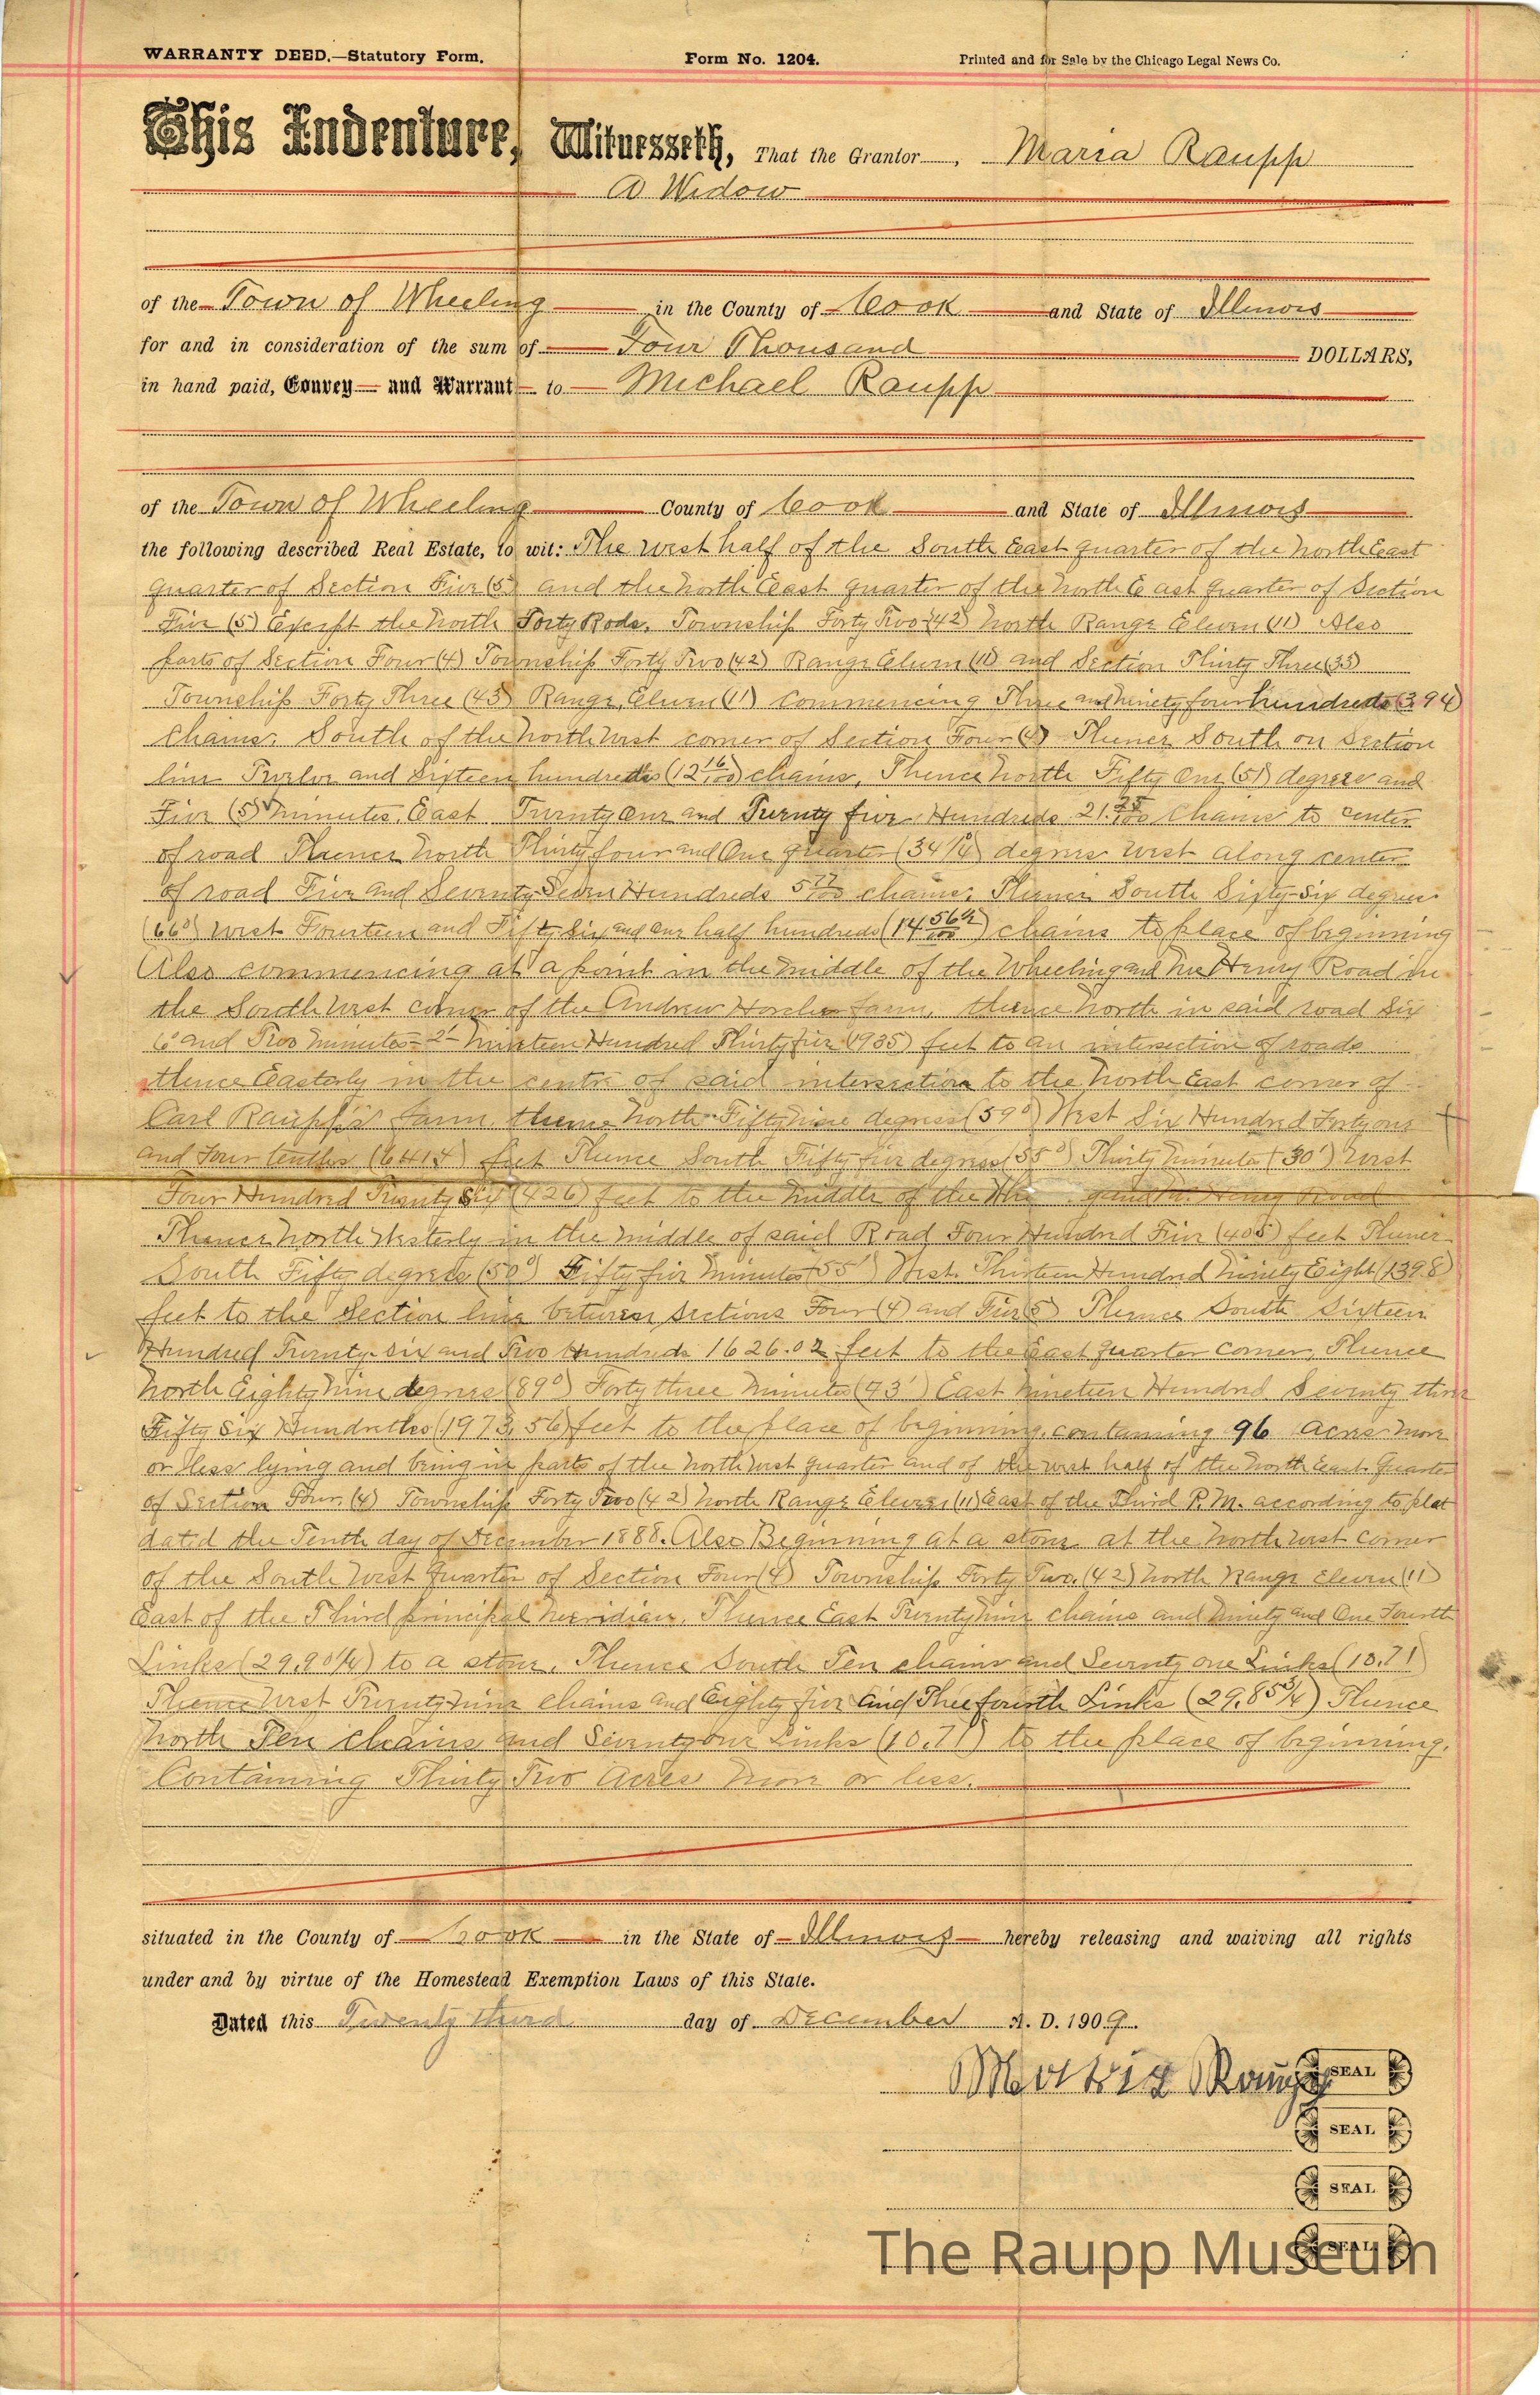 WARRANTY DEED.—Statutory Form. Form No. 1204. Printed and for Sale by the Chicago Legal News Co.
This Indenture, Witnesseth, That the Grantor, Maria Raupp
A Widow
of the Town of Wheeling in the County of Cook and State of Illinois
for and in consideration of the sum of Four Thousand DOLLARS,
in hand paid, Convey and Warrant to Michael Raupp
of the Town of Wheeling County of Cook and State of Illinois
the following described Real Estate, to wit: The West half of the South East quarter of the North East
quarter of Section Five (5) and the North East quarter of the North East quarter of Section
Five (5) Except the North Forty Rods. Township Forty Two (42) North Range Eleven (11) Also
parts of Section Four (4) Township Forty Two (42) Range Eleven (11) and Section Thirty Three (33)
Township Forty Three (43) Range Eleven (11) commencing Three and Ninety four hundreds (3.94)
chains. South of the North West corner of Section Four (4) Thence South on Section
line Twelve and Sixteen hundreds (12 16/100) chains, Thence North Fifty One (51) degrees and
Five (5) minutes, East Twenty One and Twenty five Hundreds 21. 25/100 Chains to center
of road Thence North Thirty four and One quarter (34 1/4) degrees West along center
of road Five and Seventy Seven Hundreds 5 77/100 chains. Thence South Sixty-Six degrees
(66°) West Fourteen and Fifty Six and one half hundreds (14 56½/100) chains to place of beginning
Also commencing at a point in the middle of the Wheeling and Mc Henry Road in
the South West corner of the Andrew farm, thence North in said road Six
6° and Two minutes - 2' - Nineteen Hundred Thirty five (1935) feet to an intersection of roads
thence Easterly in the centre of said intersection to the North East corner of
Carl Raupp's farm, thence North Fifty Nine degrees (59°) West Six Hundred Forty one
and Four tenths (641.4) feet Thence South Fifty five degrees (55°) Thirty Minutes (30') West
Four Hundred Twenty Six (426) feet to the middle of the Whe g and Mc Henry Road
Thence North Westerly in the middle of said Road Four Hundred Five (405) feet Thence
South Fifty degrees (50°) Fifty five Minutes (55') West. Thirteen Hundred Ninety Eight (1398)
feet to the Section line between Sections Four (4) and Five (5) Thence South Sixteen
Hundred Twenty-Six and Two Hundreds 1626.02 feet to the East quarter corner, Thence
North Eighty Nine degrees (89°) Forty three Minutes (43') East Nineteen Hundred Seventy three
Fifty Six Hundreths (1973.56) feet to the place of beginning, containing 96 Acres more
or less lying and being in parts of the North West quarter and of the West half of the North East Quarter
of Section Four, (4) Township Forty Two (42) North Range Eleven (11) East of the Third P.M. according to plat
dated the Tenth day of December 1888. Also Beginning at a stone at the North West corner
of the South West Quarter of Section Four (4) Township Forty Two, (42) North Range Eleven (11)
East of the Third principal Meridian. Thence East Twenty Nine chains and Ninety and One Fourth
Links (29.90 1/4) to a stone. Thence South Ten chains and Seventy one Links (10.71)
Thence West Twenty Nine chains and Eighty five and Three fourth Links (29.85 3/4) Thence
North Ten Chains and Seventy one Links (10.71) to the place of beginning.
Containing Thirty Two Acres more or less.
situated in the County of Cook in the State of Illinois hereby releasing and waiving all rights
under and by virtue of the Homestead Exemption Laws of this State.
Dated this Twenty third day of December A. D. 1909.
Maria Raupp SEAL
SEAL
SEAL
SEAL
The Raupp Museum